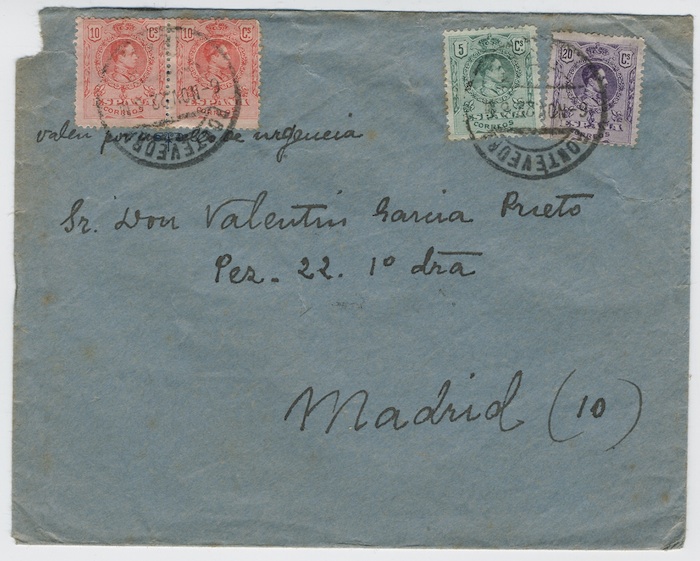 10 Cs 10 Cs
CORREOS
5 Cs 20 Cs
CORREOS
PONTEVEDRA
PONTEVEDRA
valen por uno de urgencia
Sr. Don Valentin Garcia Prieto
Pez - 22. 1º drā
Madrid (10)